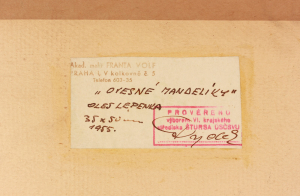 Akad. mal. FRANTA VOLF
PRAHA I, V kolkovně č. 5
Telefon 600-36
„OVESNÉ MANDELÍKY"
OLEJ LEPENKA
35 x 50 cm
1955.
PROVĚŘENO
výborem VI. krajského
střediska ÚTVARU ÚSČSVU